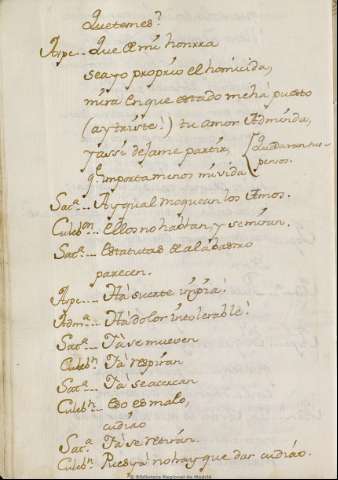 Que temes?
Arpe... Que de mi honrra
sea yo proprio el homicida,
mira en que estado me ha puesto
(ay triste!) tu amor Admirida,
y assi dejame partir, { Quedan sus-
q.e importa menos mi vida { pensos.
Sat.ª... Ay qual moquean los Amos.
Culeb.n Ellos no hablan, y se miran.
Sat.ª... Estatuas de alabastro
parecen.
Arpe... Ha suerte impia!
Adm.ª... Ha dolor intolerable!
Sat.ª... Ya se mueven
Culeb.n Ya respiran
Sat.ª... Ya se acercan
Culeb.n Eso es malo,
cuidão
Sat.ª Ya se retiran.
Culeb.n Pues ya no hay que dar cuidão.
© Biblioteca Regional de Madrid